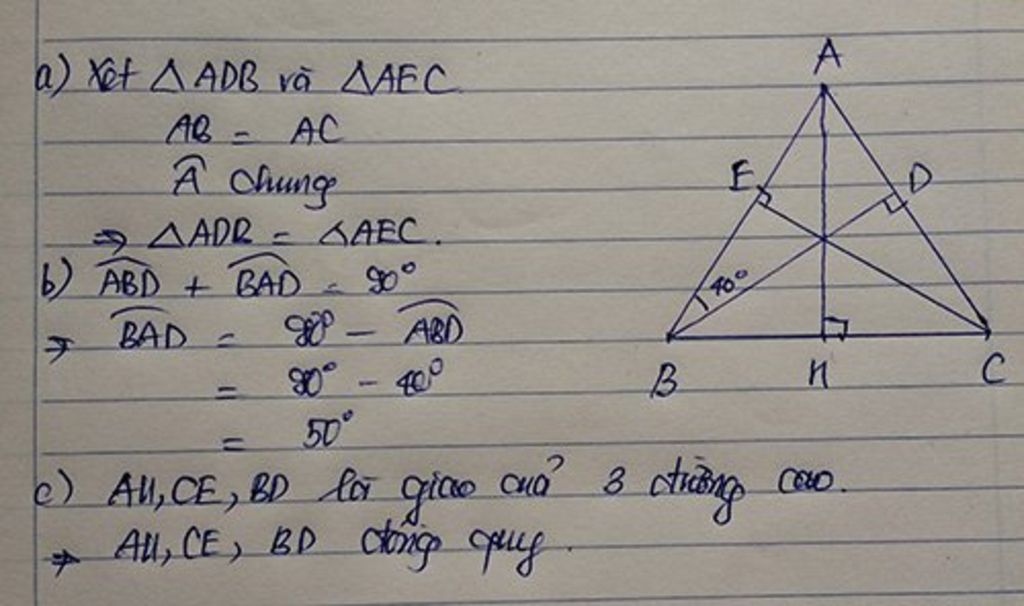 a) Xét △ADB và △AEC
AB = AC
Â chung
⇒ △ADB = △AEC.
b) ABD + BAD = 90°
⇒ BAD = 90° - ABD
= 90° - 40°
= 50°
c) AH, CE, BD là giao củả 3 đường cao.
⇒ AH, CE, BD đồng quy.
A
E
D
40°
B
H
C